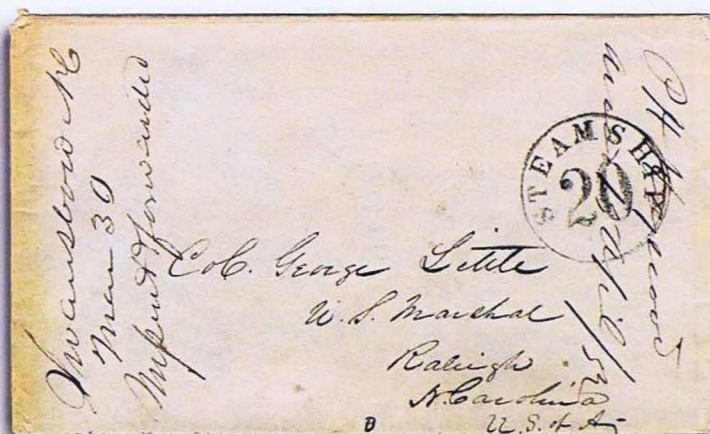 Swansboro NC
Mar 30
Missent & forwarded
STEAMSHIP
20
Col. George Little
U. S. Marshal
Raleigh
N. Carolina
U. S. of A.
B